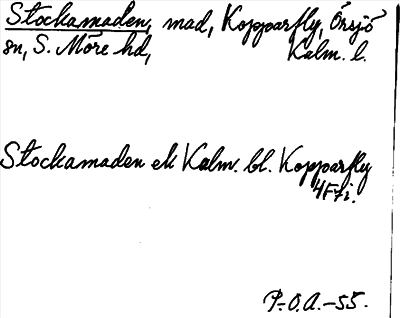 Stockamaden, mad, Kopparfly, Örsjö
sn, S. Möre hd, Kalm. l.
Stockamaden ek Kalm. bl. Kopparfly
4F7i.
P.-O.A.-55.